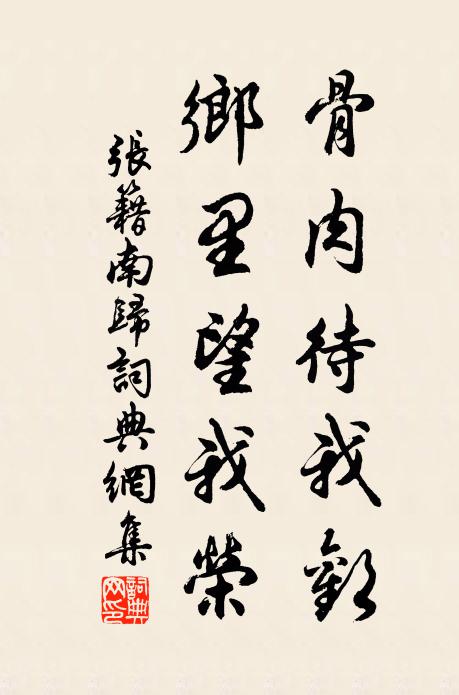 骨肉待我歡
鄉里望我榮
張籍南歸詞典網集
詞典網印